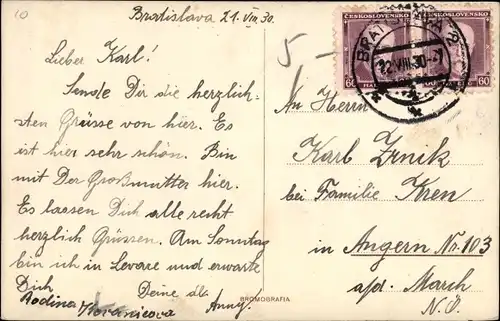 10
Bratislava 21. VIII. 30.
Lieber Karl!
Sende Dir die herzlich-
sten Grüsse von hier. Es
ist hier sehr schön. Bin
mit Der Großmutter hier.
Es lassen Dich alle recht
herzlich Grüssen. Am Sonntag
bin ich in Levare und erwarte
Dich
Deine dl. Anny.
Rodina
BROMOGRAFIA
5,-
ČESKOSLOVENSKO
ČESKOSLOVENSKO
60
60
BRATISLAVA
22.VIII.30.-21
An Herrn
Karl
bei Familie Kren
in Angern No. 103
a/d. March
N.Ö.